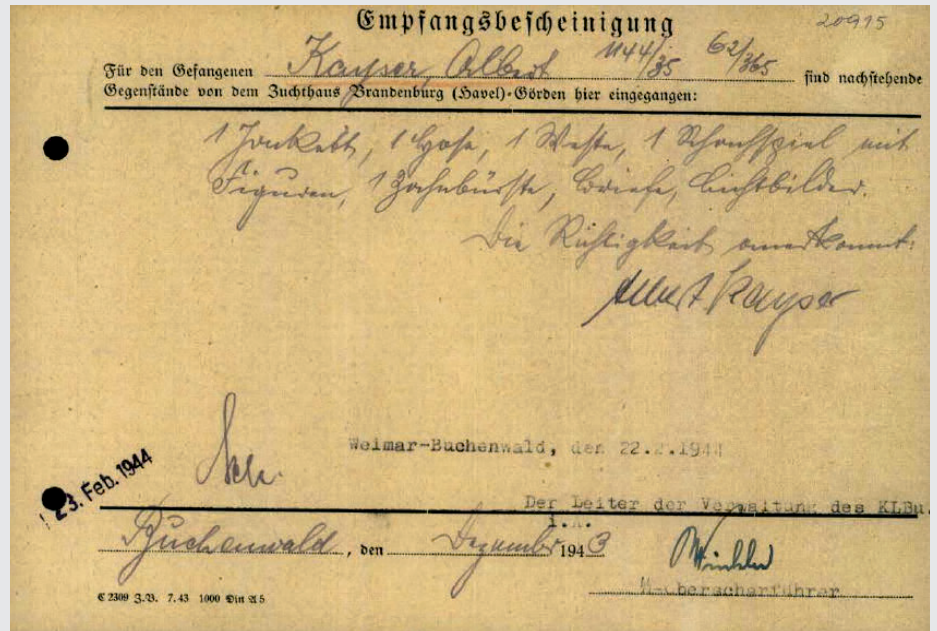 Empfangsbescheinigung 20915
Für den Gefangenen Kayser, Albert 1144/35 62/365 sind nachstehende
Gegenstände von dem Zuchthaus Brandenburg (Havel)-Görden hier eingegangen:
1 Jackett, 1 Hose, 1 Weste, 1 Schachspiel mit
Figuren, 1 Zahnbürste, Briefe, Lichtbilder.
Die Richtigkeit anerkannt:
Albert Kayser
Weimar-Buchenwald, den 22.2.1944
23. Feb. 1944
Der Leiter der Verwaltung des KLBu.
I.A.
Buchenwald, den Dezember 1943
-Oberscharführer
C 2309 J.V. 7.43 1000 Din A5